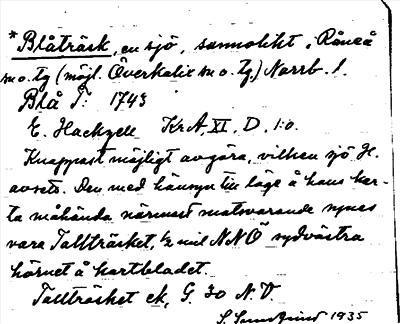 * Blåträsk, en sjö, sannolikt i Råneå
sn o. tg (möjl. Överkalix sn o. tg,) Norrb. l.
Blå T: 1743
E. Hackzell KrA, XI, D, 1:0.
Knappast möjligt avgöra, vilken sjö H.
avsets. Den med hänsyn till läge å hans kar-
ta måhända närmast motsvarande synes
vara Tallträsket, ½ mil NNÖ sydvästra
hörnet å kartbladet.
Tallträsket ek, G. 30 N.V.
1935